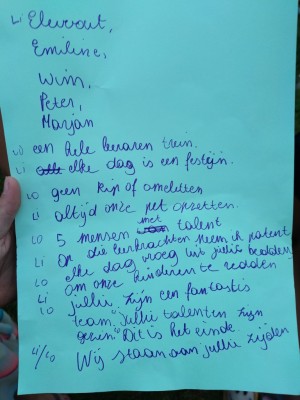 Li Elevout,
Emiline,
Wim,
Peter,
Marjan
Lo een hele leraren trein.
Li elke dag is een festijn.
Lo geen kip of omeletten
Li altijd onze pet opzetten.
Lo 5 mensen met talent
Li Op die leerkrachten neem ik patent
Lo elke dag vroeg uit jullie bedden
Li om onze kinderen te redden
Lo jullie zijn een fantastis
team, "jullie talenten zijn
gezien." Dit is het einde.
Li/Lo Wij staan aan jullie zijden